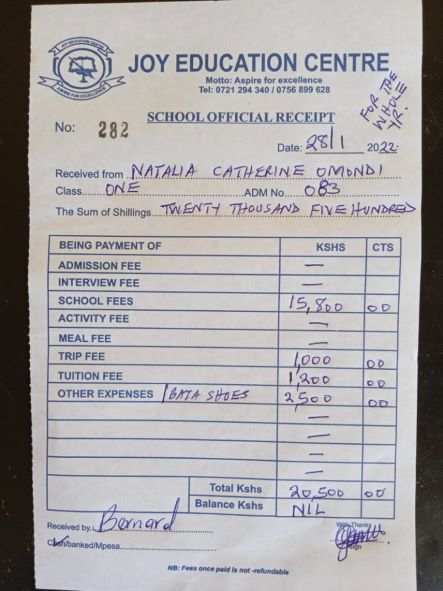 JOY EDUCATION CENTRE
ASPIRE FOR EXCELLENCE
JOY EDUCATION CENTRE
Motto: Aspire for excellence
Tel: 0721 294 340 / 0756 899 628
FOR THE
WHOLE
YR.
SCHOOL OFFICIAL RECEIPT
No: 282
Date: 28/1 2022
Received from NATALIA CATHERINE OMONDI
Class ONE ADM No. 083
The Sum of Shillings TWENTY THOUSAND FIVE HUNDRED
BEING PAYMENT OF KSHS CTS
ADMISSION FEE —
INTERVIEW FEE —
SCHOOL FEES 15,800 00
ACTIVITY FEE —
MEAL FEE —
TRIP FEE 1,000 00
TUITION FEE 1,200 00
OTHER EXPENSES BATA SHOES 2,500 00
—
—
—
—
Total Kshs 20,500 00
Balance Kshs NIL
Received by Bernard With Thanks
Cash/banked/Mpesa Sign
NB: Fees once paid is not -refundable